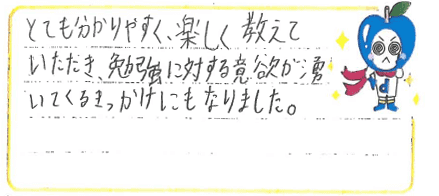 とても分かりやすく、楽しく教えて
いただき、勉強に対する意欲が湧
いてくるきっかけにもなりました。